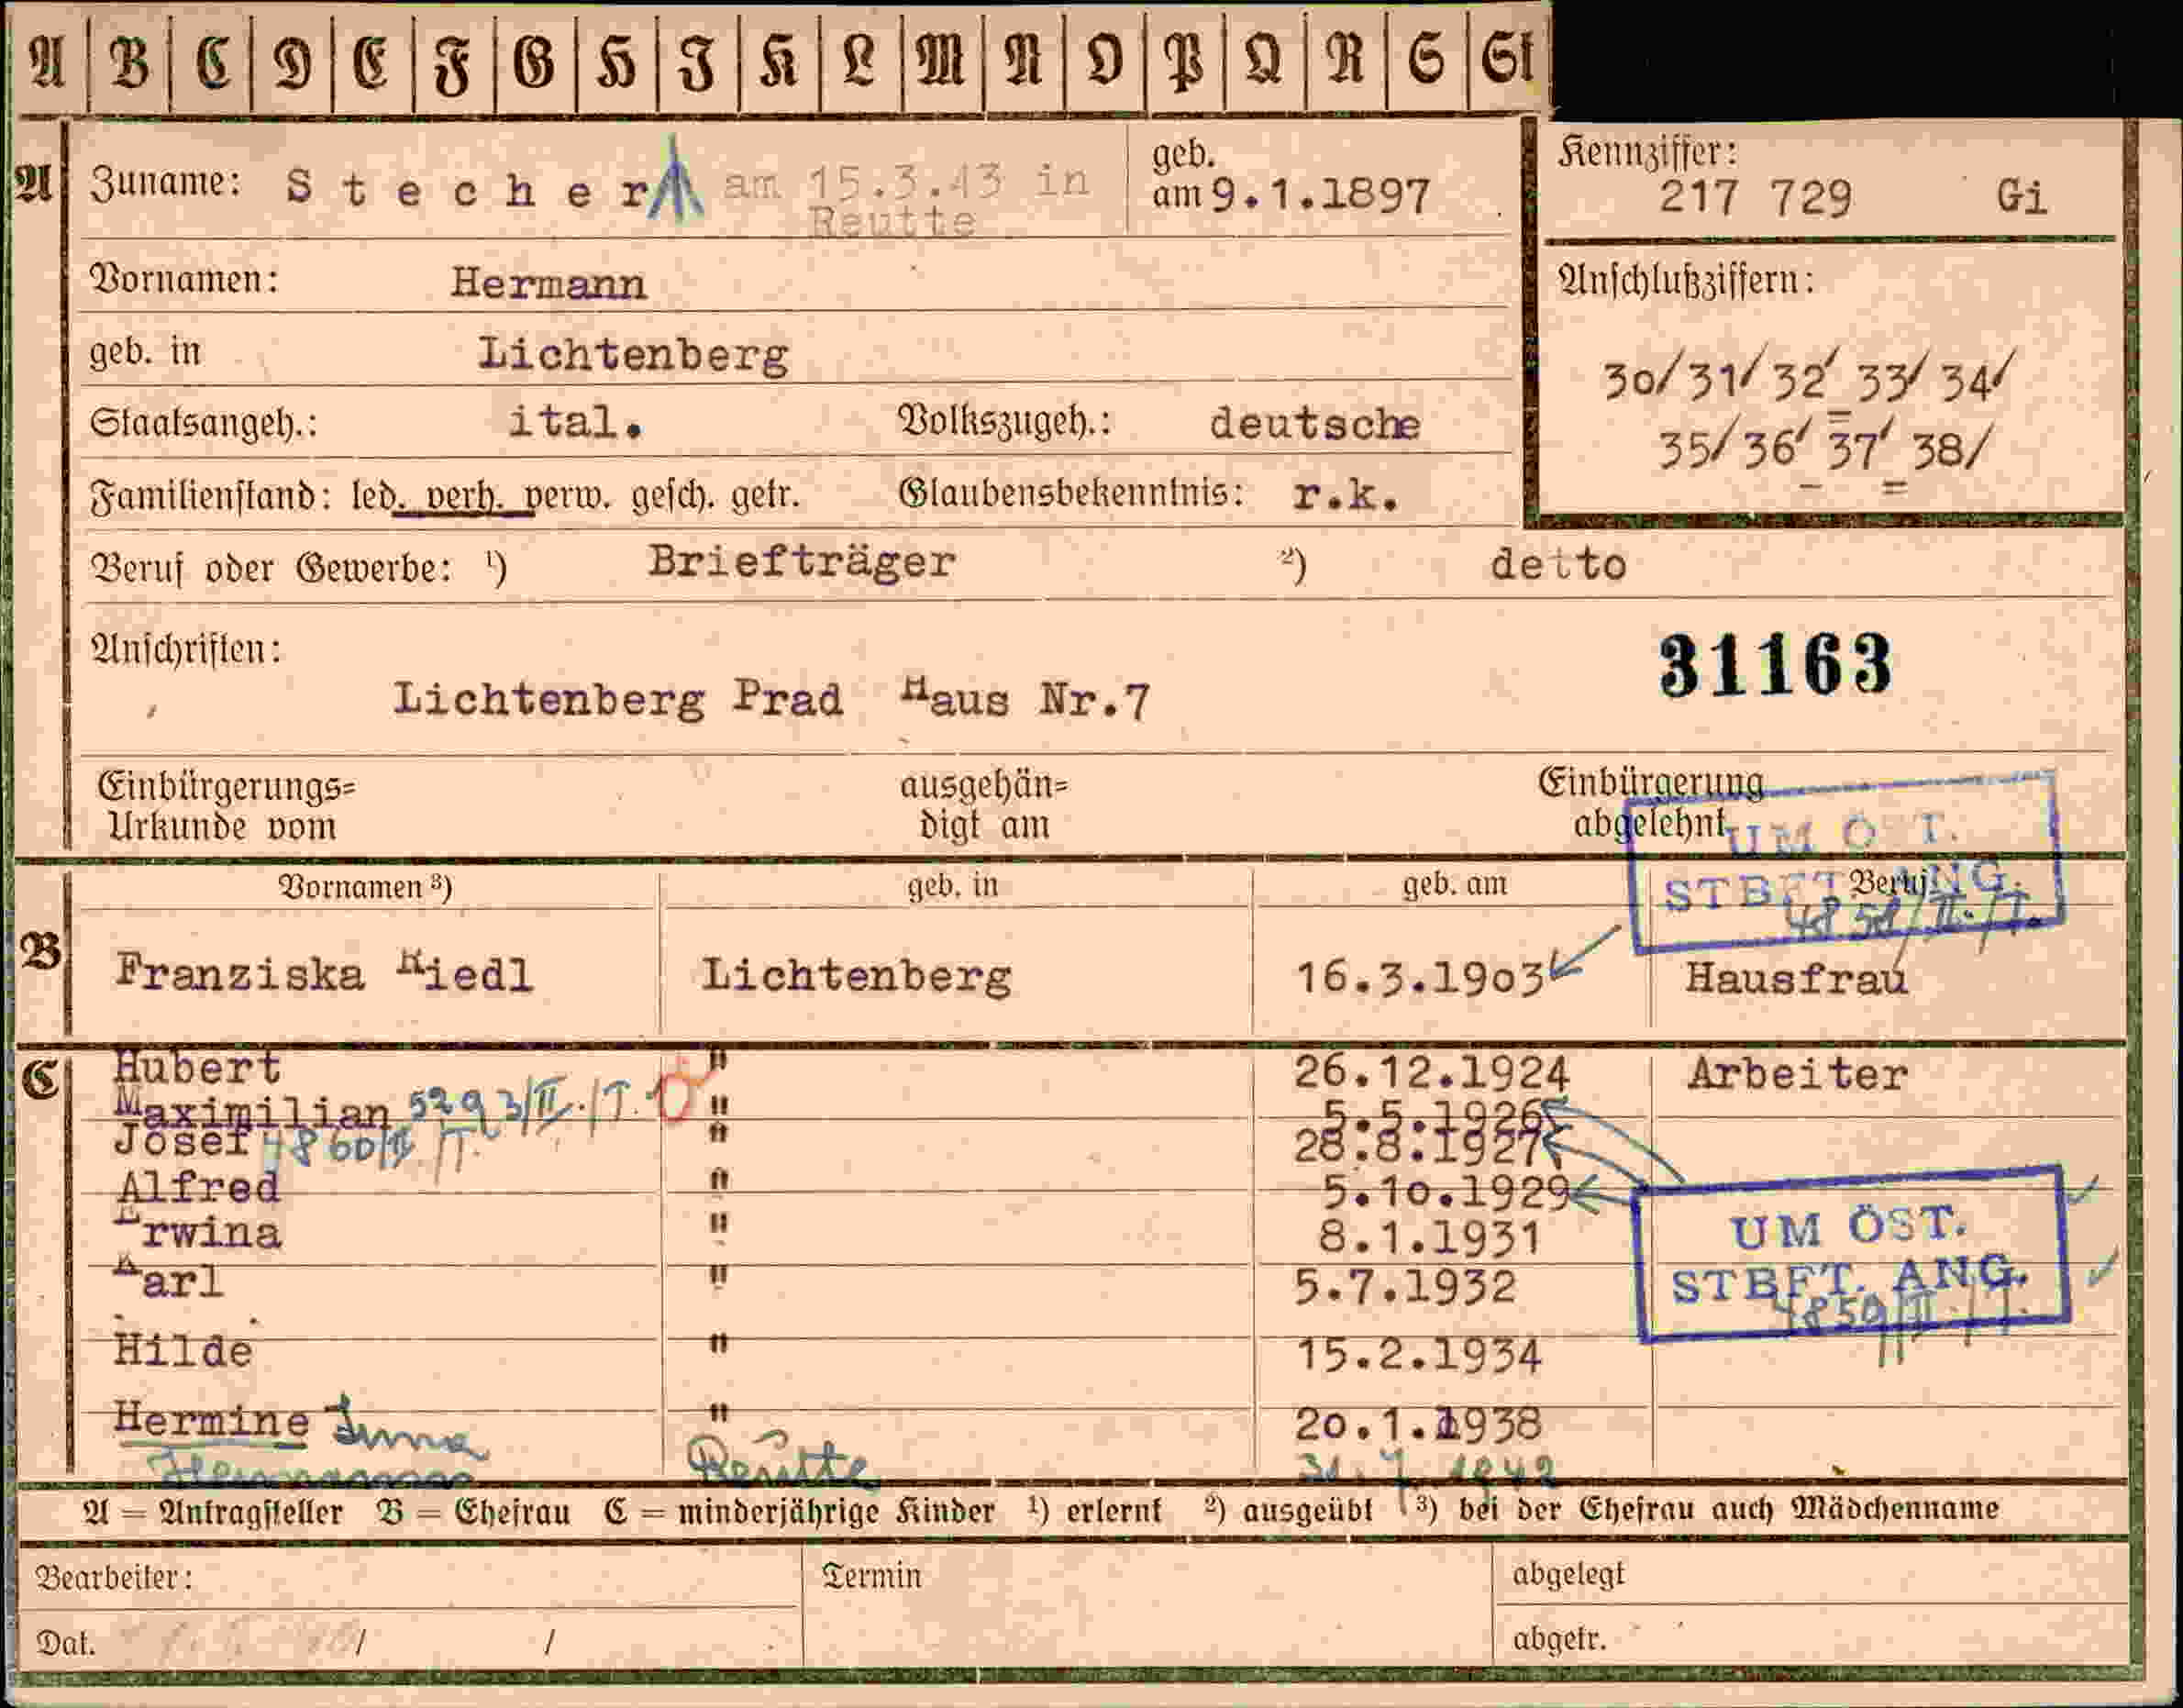 A B C D E F G H I K L M N O P Q R S St
A Zuname: Stecher am 15.3.43 in Reutte geb. am 9.1.1897
Kennziffer: 217 729 Gi
Vornamen: Hermann
Anschlußziffern:
geb. in Lichtenberg
30/ 31/ 32/ 33/ 34/
Staatsangeh.: ital. Volkszugeh.: deutsche
35/ 36/ 37/ 38/
Familienstand: led. verh. verw. gesch. getr. Glaubensbekenntnis: r.k.
Beruf oder Gewerbe: ¹) Briefträger ²) detto
Anschriften:
31163
Lichtenberg Prad Haus Nr.7
Einbürgerungs= ausgehän= Einbürgerung
Urkunde vom digt am abgelehnt
UM ÖST.
STBFT. ANG.
4858/II./T.
B Vornamen ³) geb. in geb. am Beruf
Franziska Riedl Lichtenberg 16.3.1903 Hausfrau
C Hubert " 26.12.1924 Arbeiter
Maximilian 5293/II./T. " 5.5.1926
Josef 4860/II./T. " 28.8.1927
Alfred " 5.10.1929
Erwina " 8.1.1931
UM ÖST.
Karl " 5.7.1932
STBFT. ANG.
4859/II./T.
Hilde " 15.2.1934
Hermine Irma " 20.1.1938
Hermann Reutte 31.7.1942
A = Antragsteller B = Ehefrau C = minderjährige Kinder ¹) erlernt ²) ausgeübt ³) bei der Ehefrau auch Mädchenname
Bearbeiter: Termin abgelegt
Dat. / / abgetr.